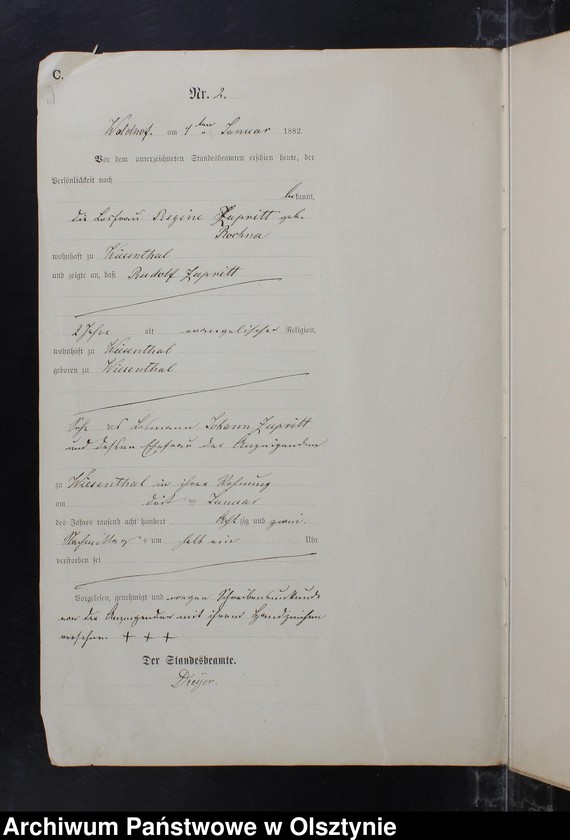 C.
Nr. 2.
Waldhof. am 4ten Januar 1882.
Vor dem unterzeichneten Standesbeamten erschien heute, der
Persönlichkeit nach
bekannt,
die Losfrau Regine geb.
Rochna
wohnhaft zu Wiesenthal
und zeigte an, daß Rudolf
2 Jahre alt evangelischer Religion,
wohnhaft zu Wiesenthal
geboren zu Wiesenthal
Sohn des Losmann Johann
und dessen Ehefrau der Anzeigenden
zu Wiesenthal in ihrer Wohnung
am ten Januar
des Jahres tausend acht hundert acht zig und zwei
Nachmittags um halb ein Uhr
verstorben sei
Vorgelesen, genehmigt und wegen Schreibensunkunde
von der Anzeigenden mit ihrem Handzeichen
versehen + + +
Der Standesbeamte.
Dreyer.
Archiwum Państwowe w Olsztynie